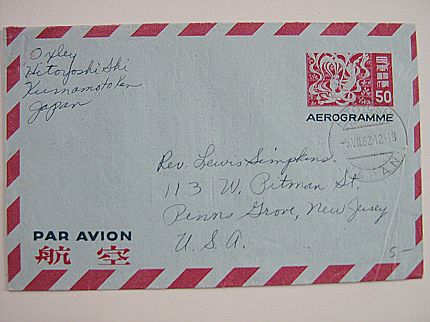 Oxley
Hitoyoshi Shi
Kumamoto Ken
Japan
日本郵便
50
AEROGRAMME
-9.VII.62.12-18
JAPAN
Rev. Lewis Simpkins
113 W. Pitman St.
Penns Grove, New Jersey
U. S. A.
PAR AVION
航空
5-